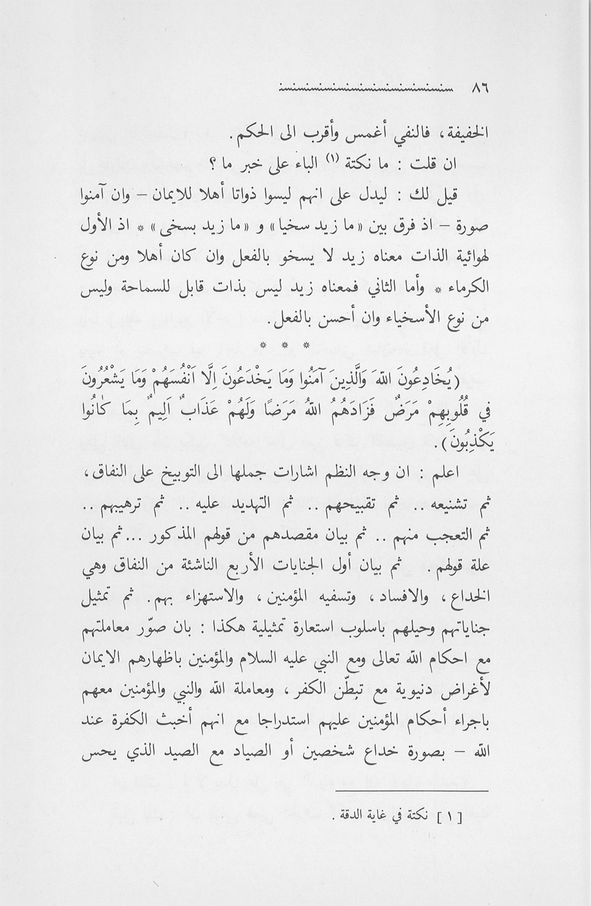 ٨٦
الخفيفة، فالنفي أغمس وأقرب الى الحكم.
ان قلت : ما نكتة (١) الباء على خبر ما ؟
قيل لك : ليدل على انهم ليسوا ذواتا أهلا للايمان – وان آمنوا
صورة – اذ فرق بين «ما زيد سخيا» و «ما زيد بسخى» * اذ الأول
لهوائية الذات معناه زيد لا يسخو بالفعل وان كان أهلا ومن نوع
الكرماء * وأما الثاني فمعناه زيد ليس بذات قابل للسماحة وليس
من نوع الأسخياء وان أحسن بالفعل.
* * *
(يُخَادِعُونَ اللّٰهَ وَالَّذِينَ آمَنُوا وَمَا يَخْدَعُونَ اِلَّا اَنْفُسَهُمْ وَمَا يَشْعُرُونَ
في قُلُوبِهِمْ مَرَضٌ فَزَادَهُمُ اللّٰهُ مَرَضًا وَلَهُمْ عَذَابٌ اَلِيمٌ بِمَا كَانُوا
يَكْذِبُونَ).
اعلم : ان وجه النظم اشارات جملها الى التوبيخ على النفاق،
ثم تشنيعه .. ثم تقبيحهم .. ثم التهديد عليه .. ثم ترهيبهم ..
ثم التعجب منهم .. ثم بيان مقصدهم من قولهم المذكور ... ثم بيان
علة قولهم. ثم بيان أول الجنايات الأربع الناشئة من النفاق وهي
الخداع، والافساد، وتسفيه المؤمنين، والاستهزاء بهم. ثم تمثيل
جناياتهم وحيلهم باسلوب استعارة تمثيلية هكذا : بان صوّر معاملتهم
مع احكام الله تعالى ومع النبي عليه السلام والمؤمنين باظهارهم الايمان
لأغراض دنيوية مع تبطّن الكفر، ومعاملة الله والنبي والمؤمنين معهم
باجراء أحكام المؤمنين عليهم استدراجا مع انهم أخبث الكفرة عند
الله – بصورة خداع شخصين أو الصياد مع الصيد الذي يحس
[١] نكتة في غاية الدقة .